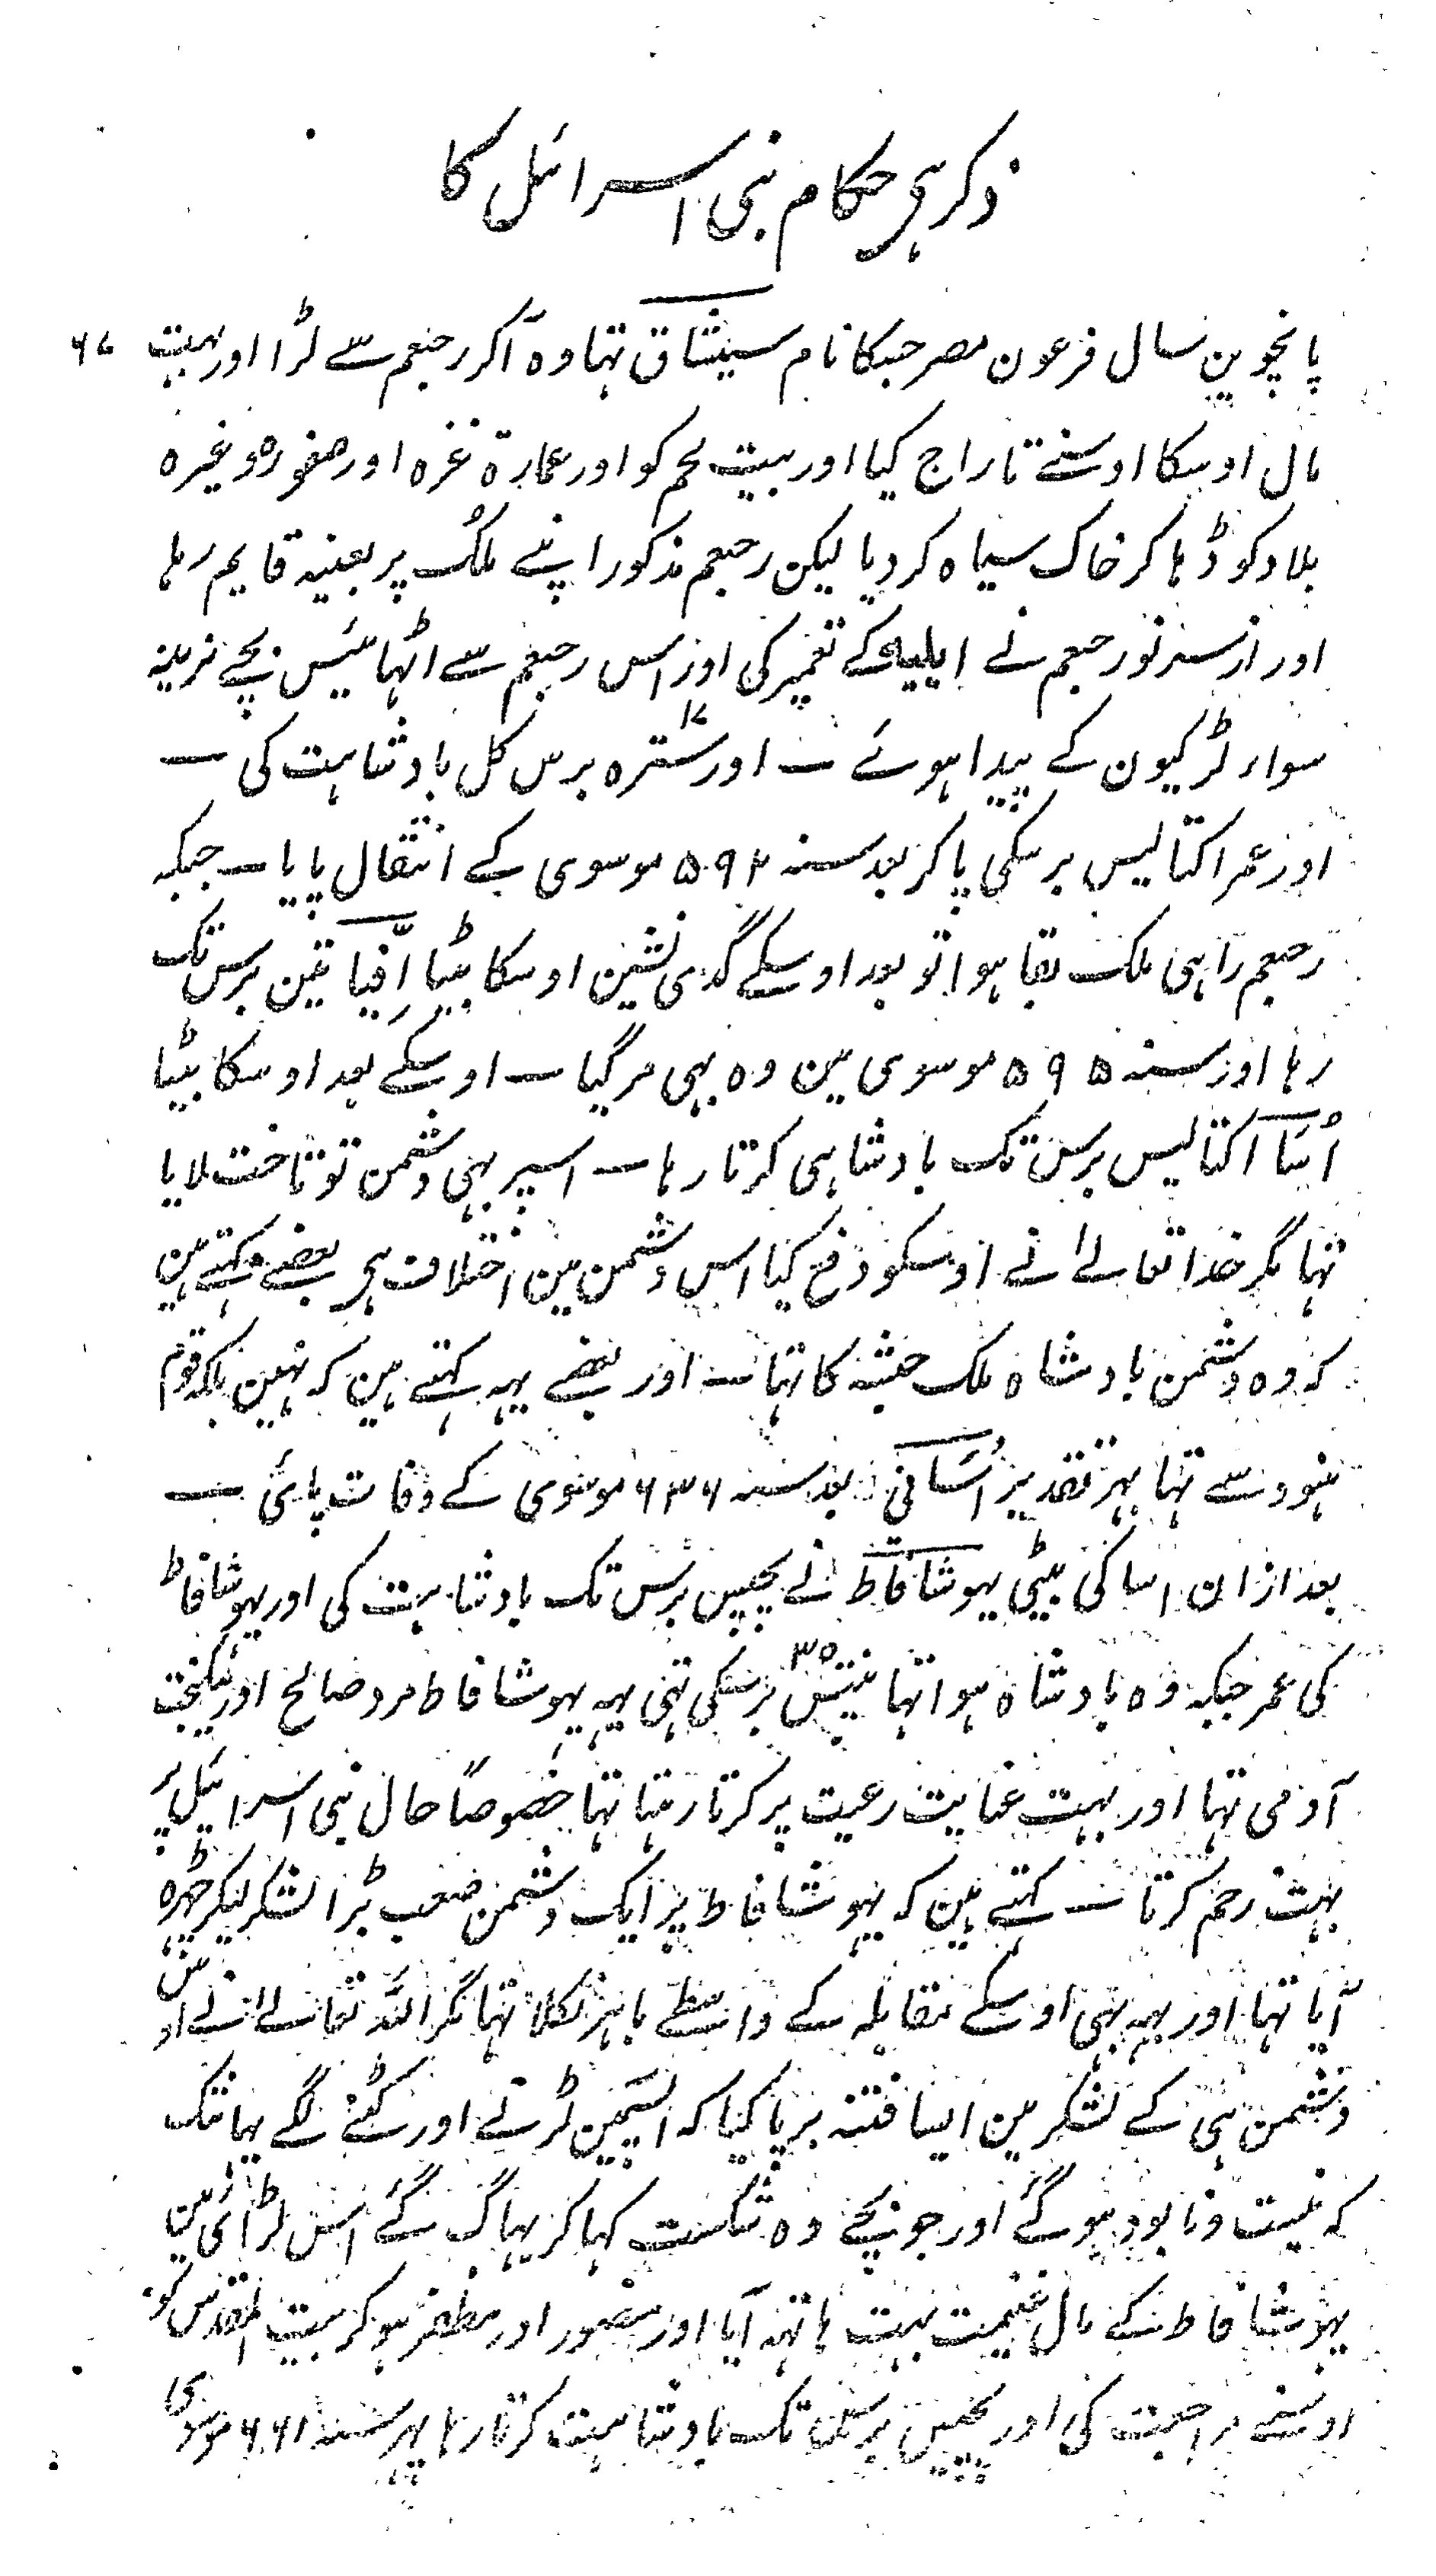 ذکر ہی حکام بنی اسرائیل کا
پانچوین سال فرعون مصر جسکا نام سیشاق تہا وہ آکر رحبعم سے لڑا اور بہت ۶۷
مال اوسکا اوسنے تاراج کیا اور بیت لحم کو اور عمارۃ غزہ اور صفورہ وغیرہ
بلاد کو ڈہا کر خاک سیاہ کر دیا لیکن رحبعم مذکور اپنے ملک پر بعینہ قایم رہا
اور از سر نو رحبعم نے ایلیہ کے تعمیر کی اور اس رحبعم سے اٹہائیس بچے نرینہ
سواے لڑکیون کے پیدا ہوئے ـ اور سترہ ۱۷ برس کل بادشاہت کی ـ
اور عمر اکتالیس برسکی پاکر بعد سنہ ۵۹۲ موسوی کے انتقال پایا ـ جبکہ
رحبعم راہی ملک بقا ہوا تو بعد اوسکے گدی نشین اوسکا بیٹا افیا تین برس تک
رہا اور سنہ ۵۹۵ موسوی مین وہ بہی مر گیا ـ اوسکے بعد اوسکا بیٹا
اُسَا اکتالیس برس تک بادشاہی کرتا رہا ـ اسپر بہی دشمن تو تاخت لایا
تہا مگر خدا تعالےٰ نے اوسکو دفع کیا اس دشمن مین اختلاف ہی بعضے کہتے ہین
کہ وہ دشمن بادشاہ ملک حبشہ کا تہا ـ اور بعضے یہہ کہتے ہین کہ نہین بلکہ قوم
ہنود سے تہا بہر تقدیر اُسَا نی بعد سنہ ۶۳۶ موسوی کے وفات پائی ـ
بعد ازان اسا کی بیٹی یہوشافاط نے پچیس برس تک بادشاہت کی اور یہوشافاط
کی عمر جبکہ وہ بادشاہ ہوا تہا پینتیس ۳۵ برسکی تہی یہہ یہوشافاط مرد صالح اور نیکبخت
آدمی تہا اور بہت عنایت رعیت پر کرتا رہتا تہا خصوصاً حال بنی اسرائیل پر
بہت رحم کرتا ـ کہتے ہین کہ یہوشافاط پر ایک دشمن صعب بڑا لشکر لیکر چڑہ
آیا تہا اور یہہ بہی اوسکے مقابلہ کے واسطے باہر نکلا تہا مگر اللہ تعالےٰ نے اوس
دشمن ہی کے لشکر مین ایسا فتنہ برپا کیا کہ آپسمین لڑنے اور کٹنے لگے یہانتک
کہ نیست و نابود ہو گئے اور جو بچے وہ شکست کہا کر بہاگ گئے اس لڑائی مین
یہوشافاط کے مال غنیمت بہت ہاتہہ آیا اور منصور اور مظفر ہو کر بیت المقدس کو
اوسنے مراجعت کی اور پچیس برس تک بادشاہت کرتا رہا پہر سنہ ۶۶۱ موسوی